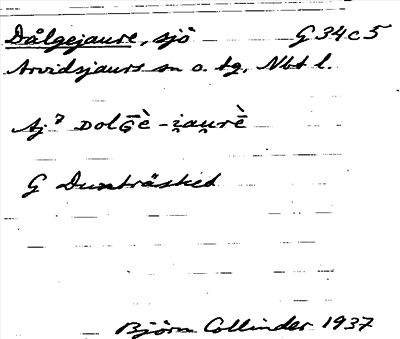 Dålgejaure, sjö G 34 c 5
Arvidsjaurs sn o. tg, Nbt l.
Aj⁷ DolG̅è - i̯au̯rḕ
G Dunträsket
Björn Collinder 1937